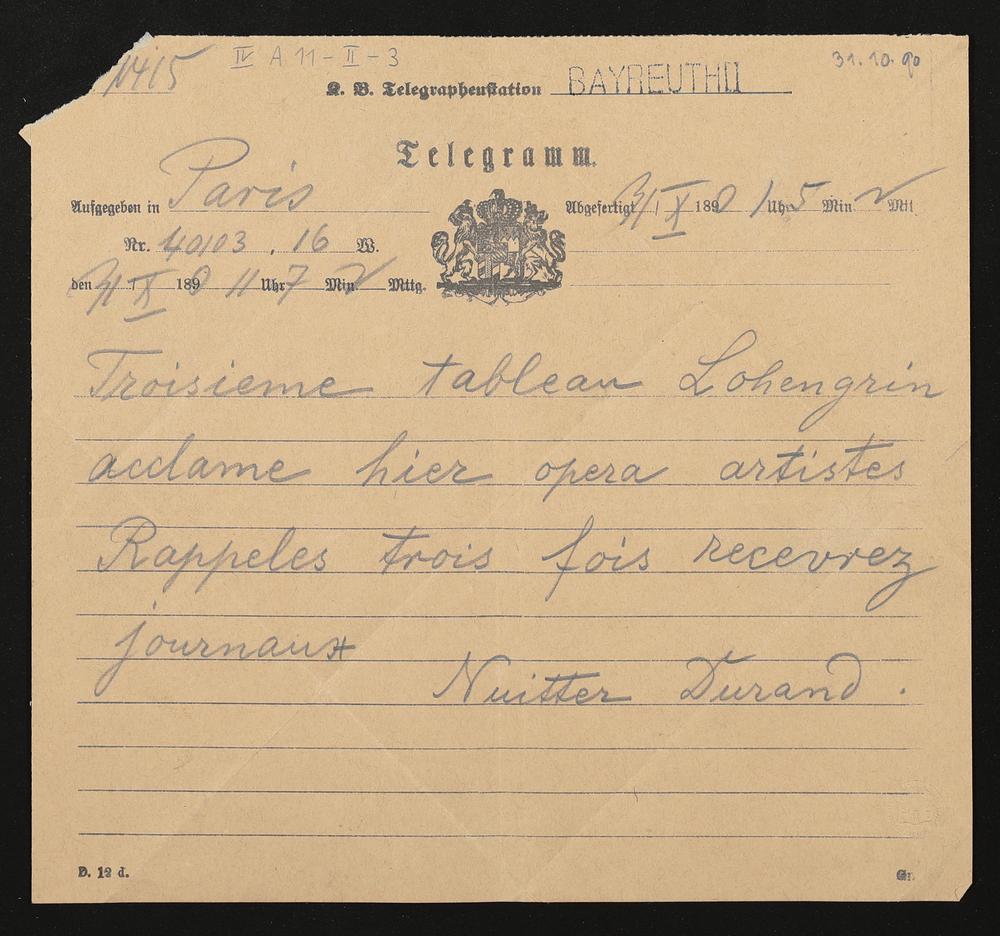 1415 IV A 11-II-3 31.10.90
K. B. Telegraphenstation BAYREUTH II
Telegramm.
Aufgegeben in Paris
Abgefertigt 31/X 1890 1 Uhr 5 Min. Mtt
Nr. 40103. 16 W.
den 31/X 1890 11 Uhr 7 Min. Mttg.
Troisieme tableau Lohengrin
acclame hier opera artistes
Rappeles trois fois recevrez
journaux
Nuitter Durand.
D. 12 d. Gr.